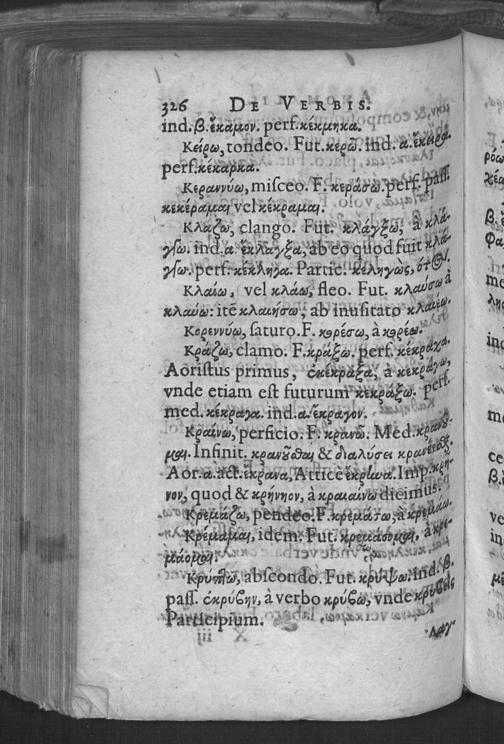 326 DE VERBIS.
ind. β. ἔκαμον. perf. κέκμηκα.
Κείρω, tondeo. Fut. κερῶ. ind. α. ἔκειρα.
perf. κέκαρκα.
Κεραννύω, misceo. F. κεράσω. perf. pass.
κεκέραμαι vel κέκραμαι.
Κλάζω, clango. Fut. κλάγξω, à κλά-
γξω. ind. α. ἔκλαγξα, ab eo quod fuit κλά-
γξω. perf. κέκληγα. Partic. κεληγὼς, ότος.
Κλαίω, vel κλάω, fleo. Fut. κλαύσω à
κλαύω: itē κλαιήσω, ab inusitato κλαιέω.
Κορεννύω, saturo. F. κορέσω, à κορέω.
Κράζω, clamo. F. κράξω. perf. κέκραχα.
Aoristus primus, ἐκέκραξα, à κεκράγω,
vnde etiam est futurum κεκράξω. perf.
med. κέκραγα. ind. α. ἔκραγον.
Κραίνω, perficio. F. κρανῶ. Med. κρανοῦ-
μαι. Infinit. κρανοῦσθαι & διαλύσει κρανέεσθ.
Aor. α. act. ἔκρανα, Atticè ἔκρινα. Imp. κρῆ-
νον, quod & κρήηνον, à κραιαίνω dicimus.
Κρεμάζω, pendeo. F. κρεμάσω, à κρεμάω.
Κρέμαμαι, idem. Fut. κρεμάσομαι, à κρε-
μάομαι.
Κρύπτω, abscondo. Fut. κρύψω. ind. β.
pass. ἐκρύβην, à verbo κρύβω, vnde κρυβεὶς
Participium.
Λαγ-